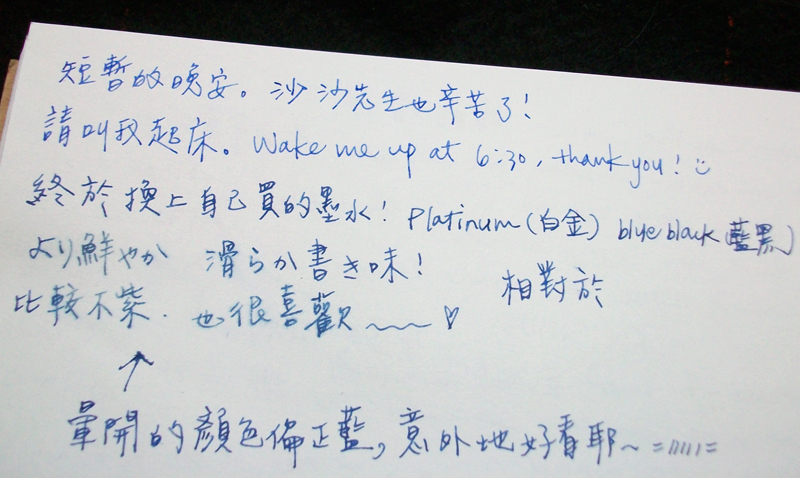 短暫的晚安。沙沙先生也辛苦了!
請叫我起床。Wake me up at 6:30, thank you! :)
終於換上自己買的墨水! Platinum (白金) blue black (藍黑)
より鮮やか 滑らか書き味!
相對於
比較不紫. 也很喜歡~~~♡
↑
暈開的顏色偏正藍,意外地好看耶~ =/////=